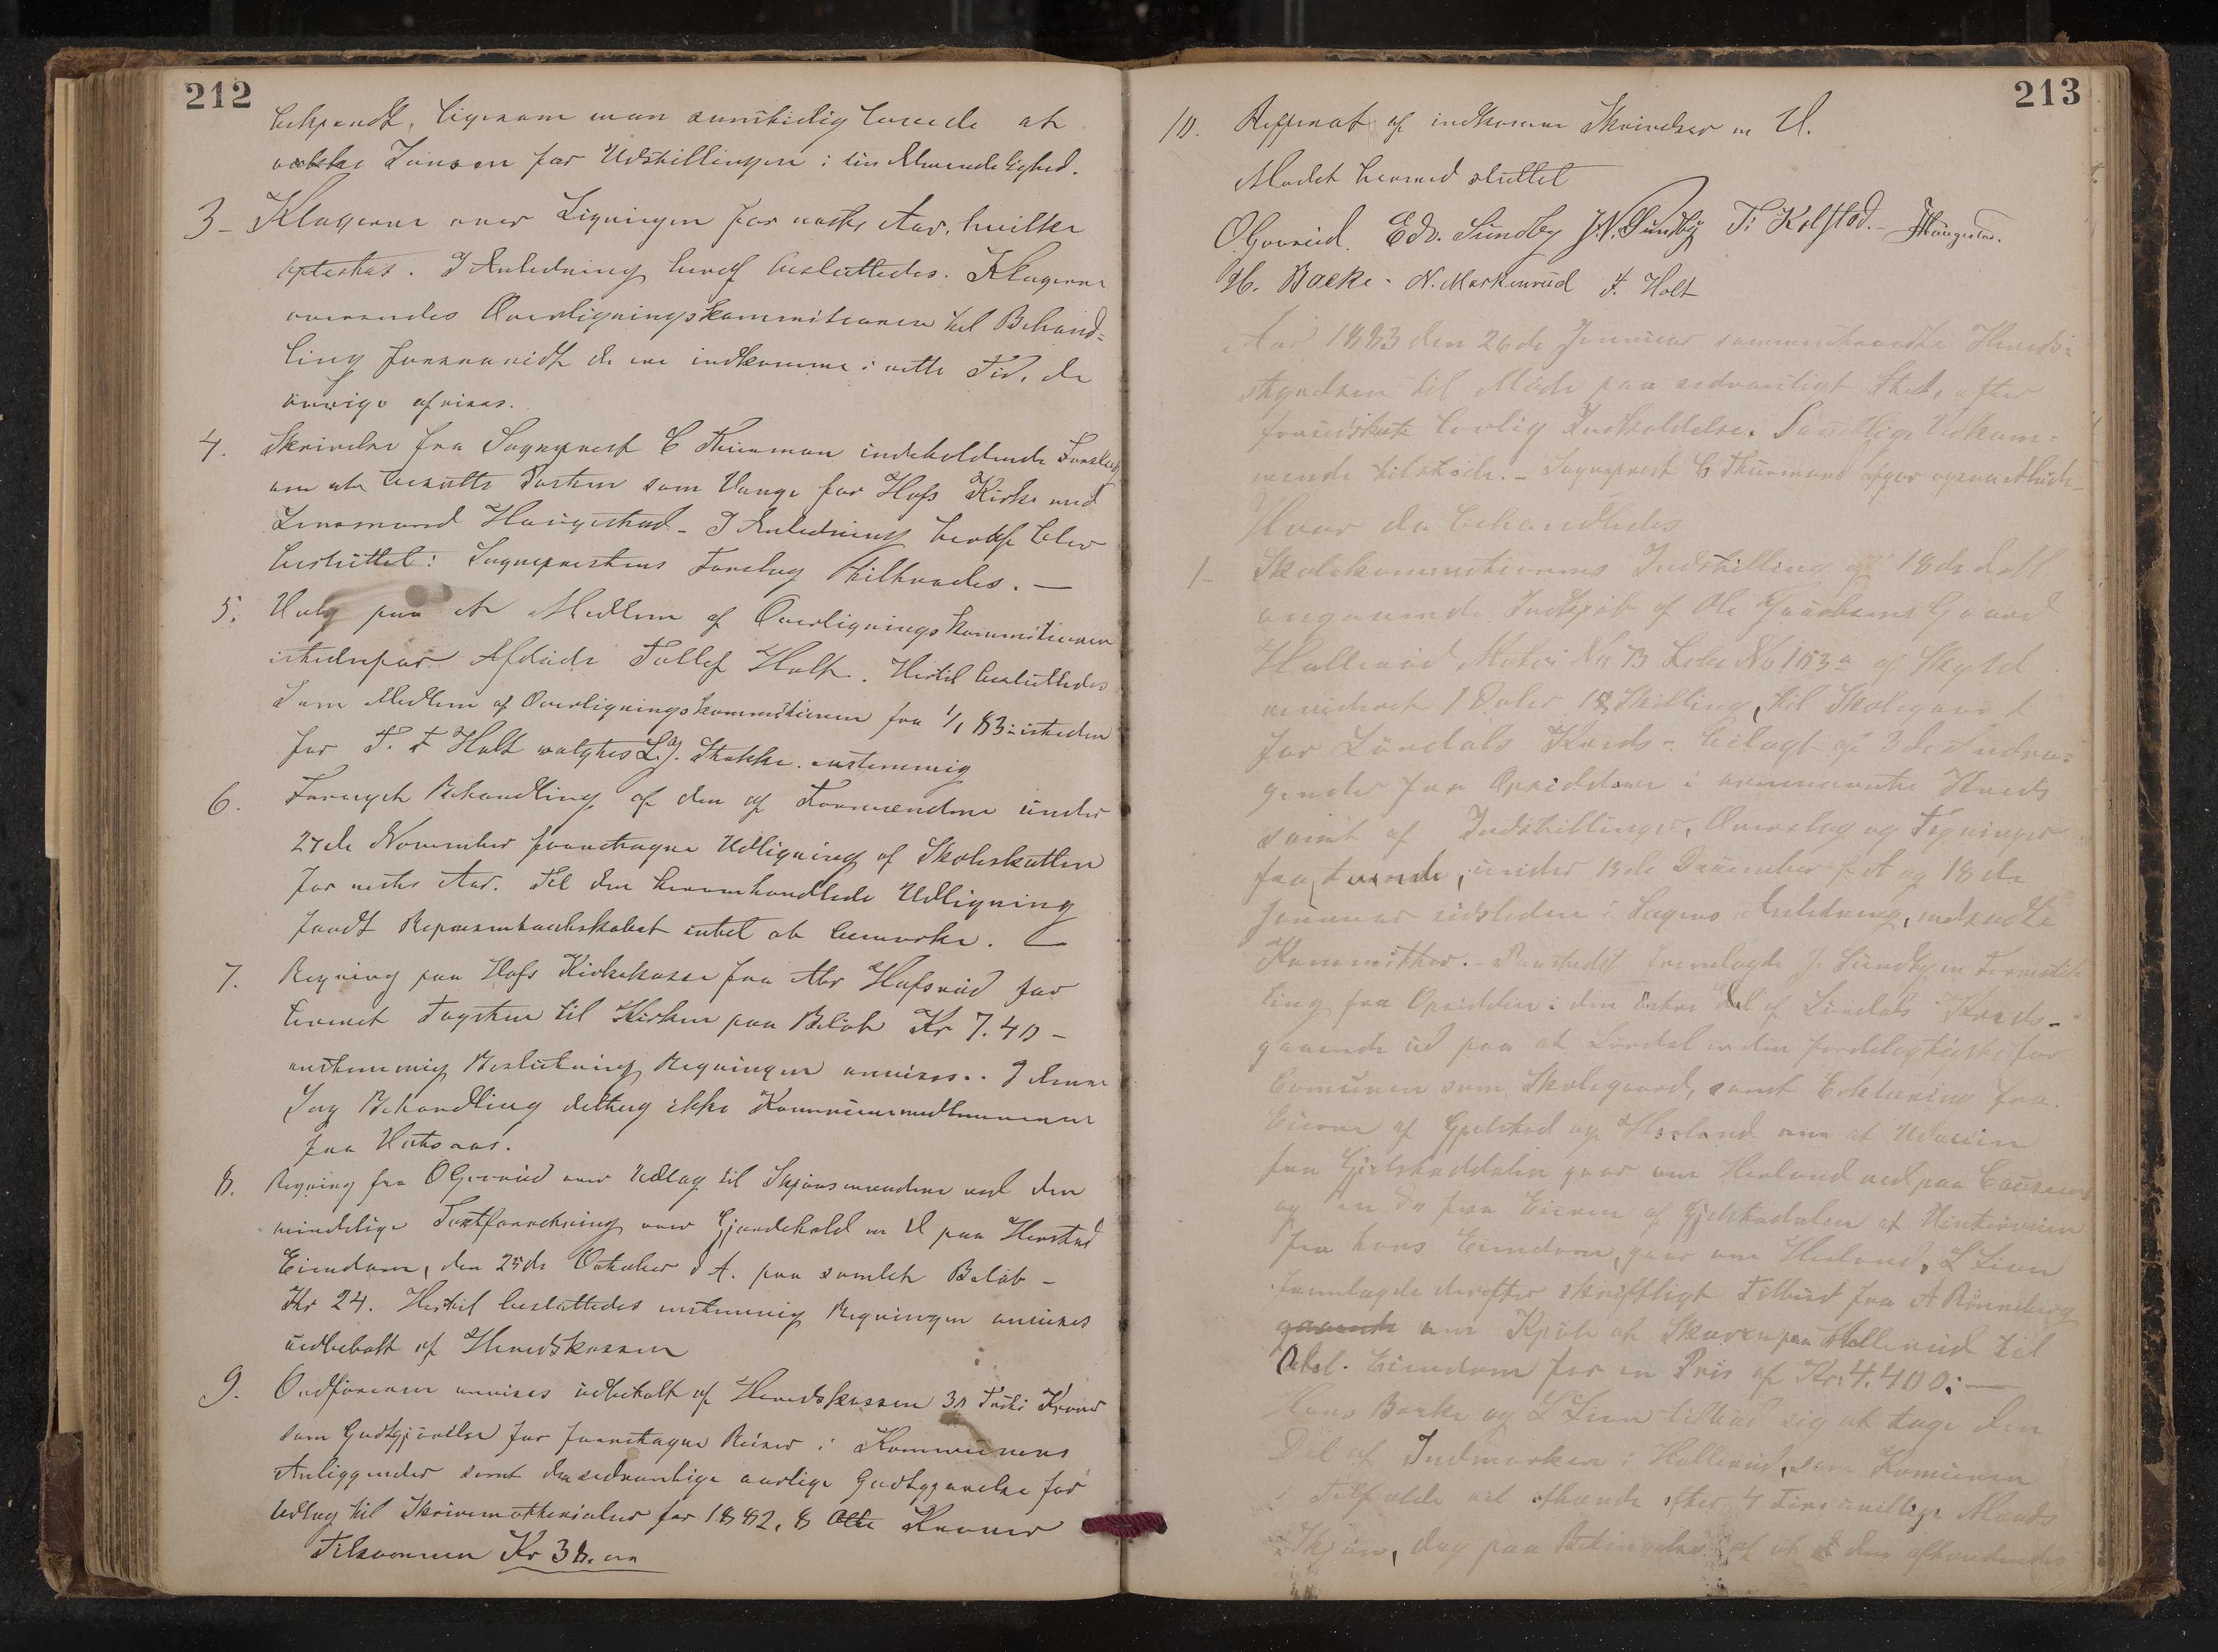 212
bekjendt, ligesom man samtidig lovede at
række Lausen for Udstillingen i sin Almindelighed.
3 - Klagerne over Ligningen for næste Aar, hvilke
oplæstes. I Anledning heraf besluttedes. Klagerne
oversendes Overligningskommitionen til Behand-
ling forsaavidt de ere indkomne i rette Tid, de
øvrige afvises.
4. Skrivelse fra Sogneprest C Thurman indeholdende Forslag
om at besætte Posten som Værge for Hofs Kirke med
Lensmand Haugestad - I Anledning heraf blev
besluttet: Sogneprestens Forslag tiltrædes. —
5. Valg paa et Medlem af Overligningskommitionen
istedenfor Afdøde Tollef Holt. Hertil besluttedes
Som Medlem af Overligningskommitionen fra 1/1 83 - isteden
for T. T Holt valgtes L. J. Stakke. enstemmig
6. Fornyet Behandling af den af Formændene under
27de November foretagne Udligning af Skoleskatten
for næste Aar. Til den heromhandlede Udligning
fandt Repræsentantskabet intet at bemærke. —
7. Regning paa Hofs Kirkekasse fra Abr Hafsrud for
leveret Tagsten til Kirken paa Beløb Kr 7.40 -
enstemmig Beslutning Regningen anvises.. I denne
Sag Behandling deltog ikke Kommunemedlemmerne
fra Vataas.
8. Regning fra O Gaarud over Udlæg til Skjønsmændene ved den
mindelige Takstforretning over Gjærdehold m V paa Herstad
Eiendom, den 25de Oktober d A. paa samlet Beløb -
Kr 24. Hertil besluttedes enstemmig Regningen anvises
udbetalt af Heredskassen
9. Ordføreren anvises udbetalt af Heredskassen 30 Tredi Kroner
som Godtgjørelse for foretagne Reiser i Kommunens
Anliggender samt den sedvanlige aarlige Godtgjørelse for
Udlæg til Skrivematterialier for 1882, 8 Otte Kroner
Tilsammen Kr 38.00
213
10. Refferat af indkomne Skrivelser m V.
Mødet hermed sluttet
O Gaarud. Edv. Sundby J. N. Sundby T. Kolstad. - Haugestad.
H. Backe - N. Markerud T. Holt
Aar 1883 den 26de Januar sammentraadte Hereds-
styrelsen til Møde paa sedvanligt Sted, efter
forudskikket lovlig Indkaldelse. Samtlige Vedkom-
mende tilstede. - Sogneprest C Thurmand
Hvor da behandledes
1 - Skolekommitionens Indstilling af 18de d M
angaaende Indkjøb af Ole Jacobsens Gaard
Hallerud Matr. Nr 73 Løbe No 153a af Skyld
revideret 1 Daler 18 Skilling, til Skolegaard
for Lørdals Kreds - bilagt af 3de
fra Opsiddere i ovennævnte Kreds
samt af Indstillinger, Overslag og Tegninger
fra tvende, under 13de December f A og 18de
Januar sidstleden i Sagens Anledning, nedsatte
Kommitteer. - Paa stedet fremlagde J. Sundby en Forestil-
ling fra Opsiddere i den østre Del af Lørdals Kreds -
gaaende ud paa at Lørdal er den fordelagtigste for
Comunen som Skolegaard, samt Erklæring fra
Eierne af Gjelstad og Horland om at Udveien
fra Gjelstaddalen gaar om Horland ned paa Chauseen
og en Do fra Eieren af Gjelstadalen at Vinterveien
fra hans Eiendom, gaar om Horland, L Lien
fremlagde derefter skriftligt Tilbud fra A Rønneberg
gaaende om Kjøb af Skoven paa Hallerud til
Abel. Eiendom for en Pris af Kr. 4.400: —
Hans Backe og L Lien tilbød sig at tage den
Del af Indmarken i Hallerud, som Komunen
i Tilfælde vil afhænde efter 4 Fire uvillige Mænds
Skjøn, dog paa Betingelse af at den afhændendes